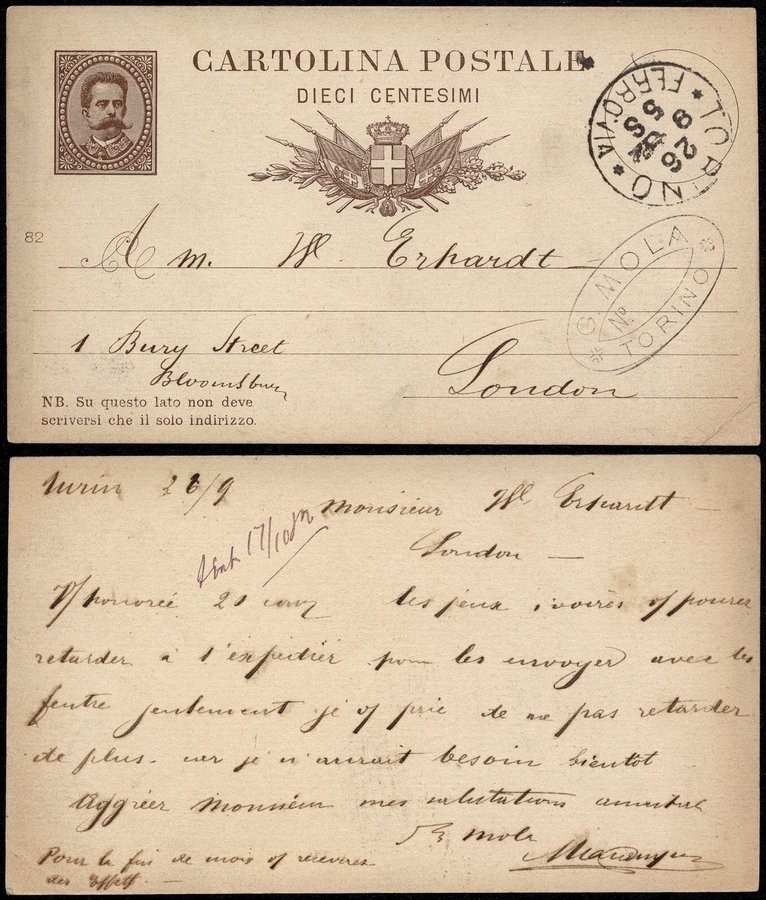 CARTOLINA POSTALE
DIECI CENTESIMI
TORINO
FERROVIA
26
9
5 S
82
A m. Wl. Erhardt
G. MOLA
No.
TORINO
1 Bury Street
Bloomsbury
London
NB. Su questo lato non deve
scriversi che il solo indirizzo.
Turin 26/9
Monsieur Wl Erhardt
London
17/10
V/ honorée 20 les jeux ivoires v/ pouvez
retarder à l'expedier pour les envoyer avec les
feutre seulement je v/ prie de ne pas retarder
de plus. car je n'aurait besoin bientot
Aggréer Monsieur mes salutations
Mola
Pour la fin de mois v/ recevres
des Effets.